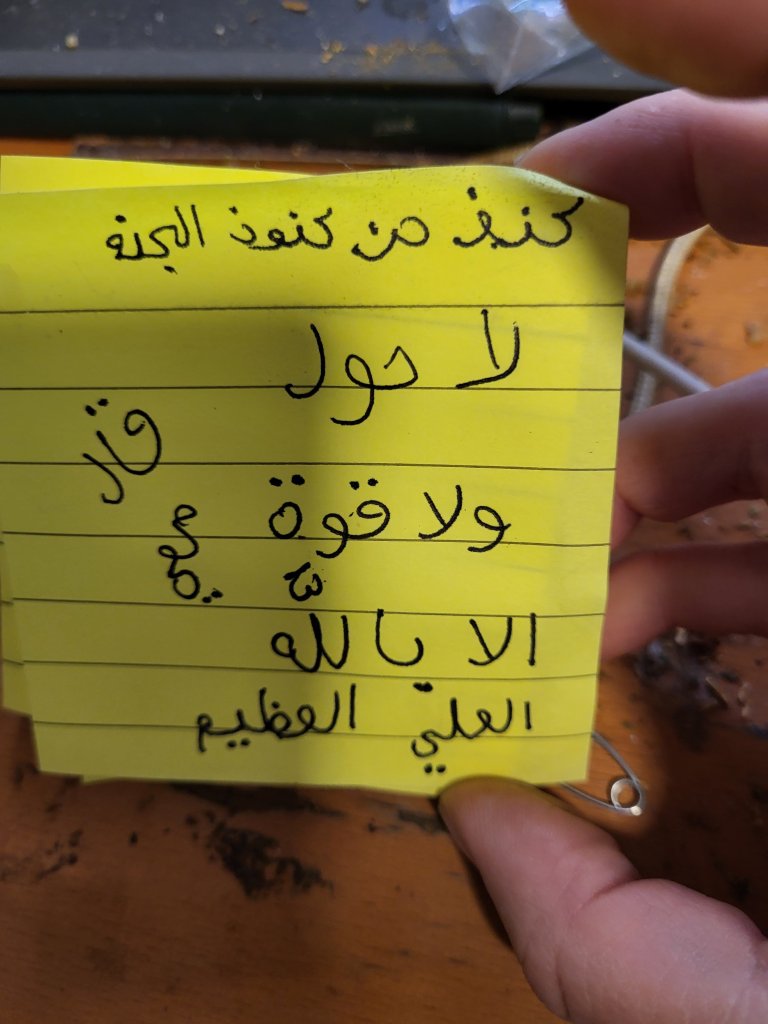 كنز من كنوز الجنة
لا حول
ولا قوة
الا بالله
العليّ العظيم